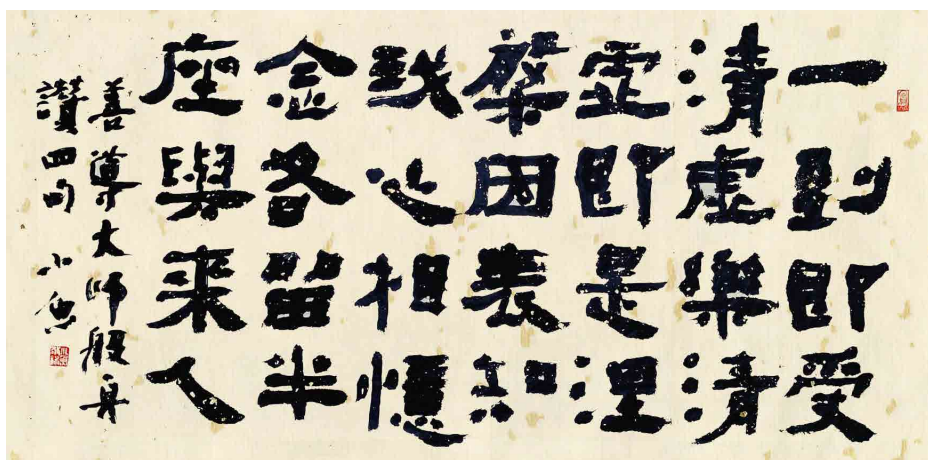 一到即受
清虛樂清
虛即是涅
槃因表知
我心相憶
念各留半
座與來人
善導大師般舟
讚四句 小魚